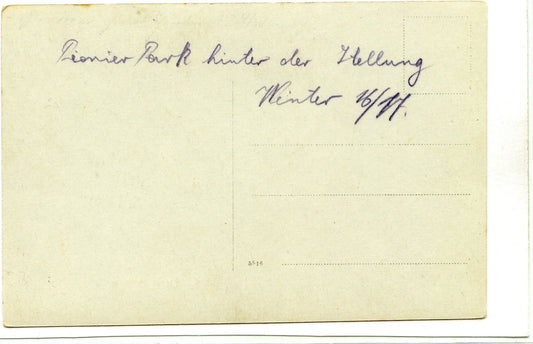 Pionier Park hinter der Stellung
Winter 16/17.